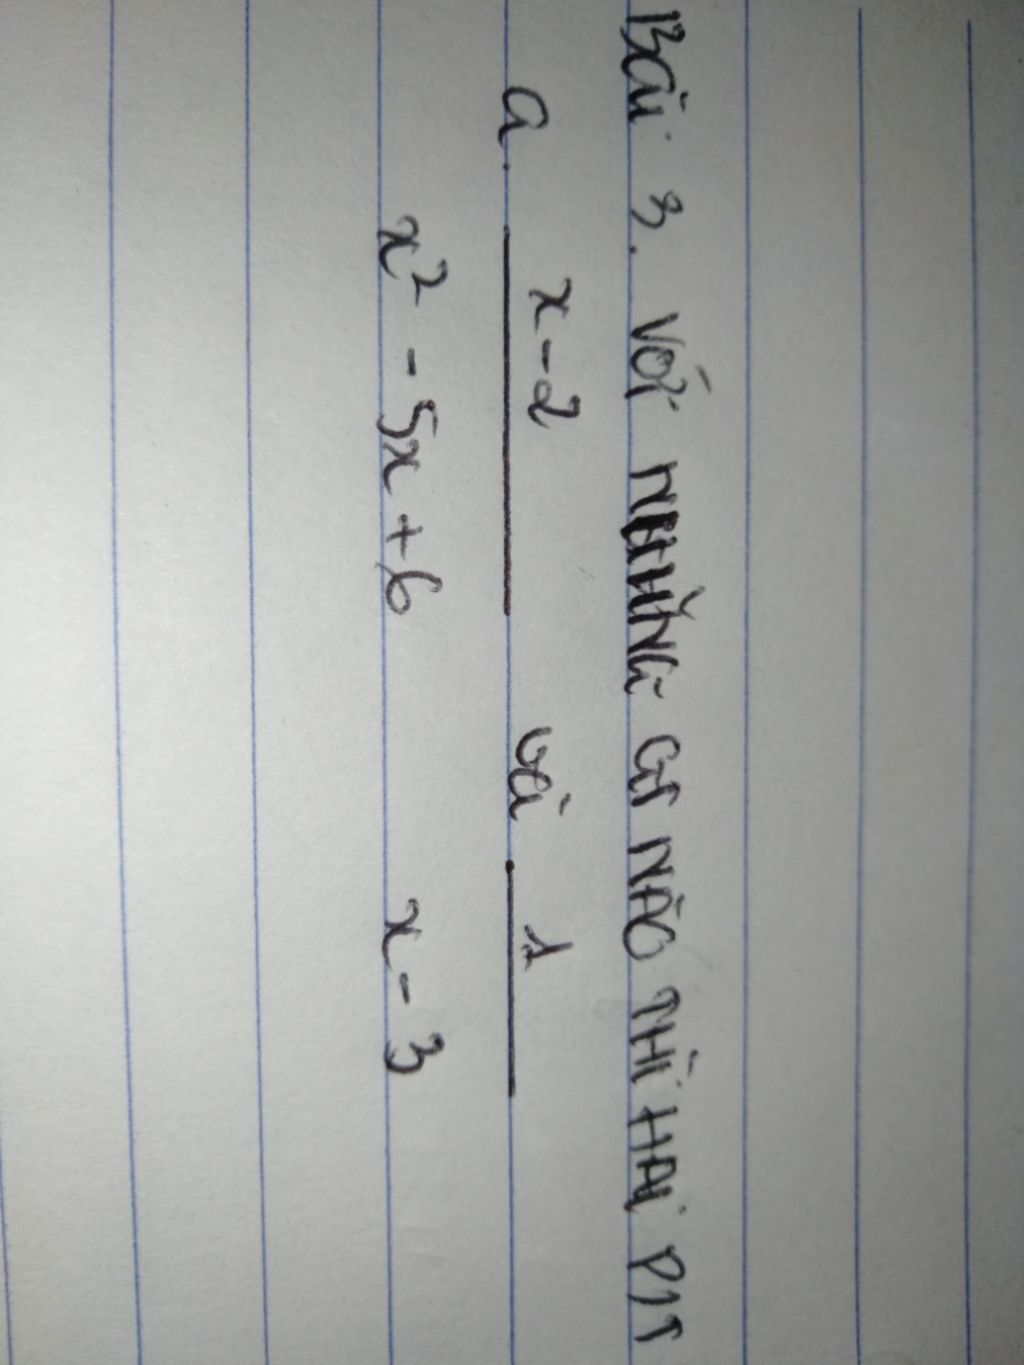 Bài 3. VỚI NHỮNG GT NÀO THÌ HAI PTT
a. x-2 / x² - 5x + 6 và 1 / x - 3